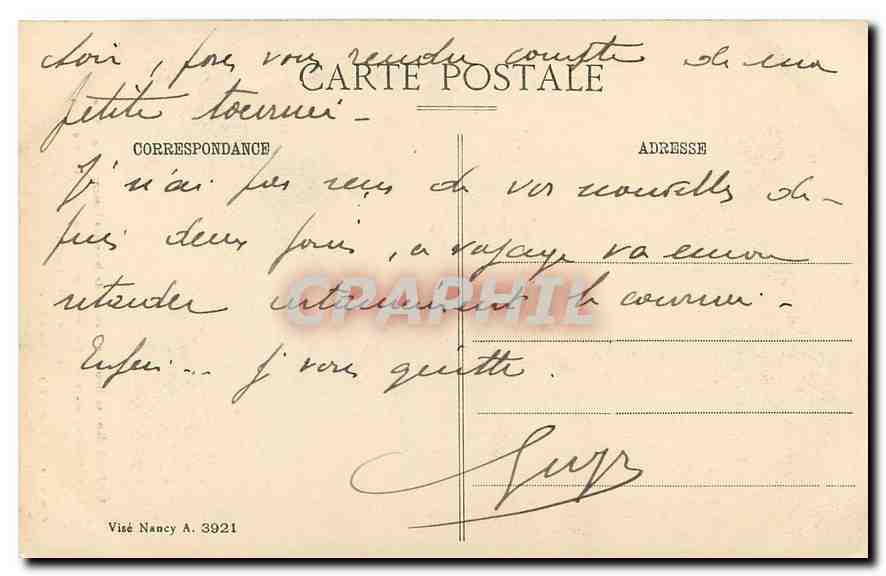 soir, pour vous rendre compte de ma
CARTE POSTALE
petite tournée -
CORRESPONDANCE
ADRESSE
Je n'ai pas reçu de vos nouvelles de-
puis deux jours, ce voyage va encore
retarder certainement le courrier -
CPAPHIL
Enfin... je vous quitte.
Visé Nancy A. 3921